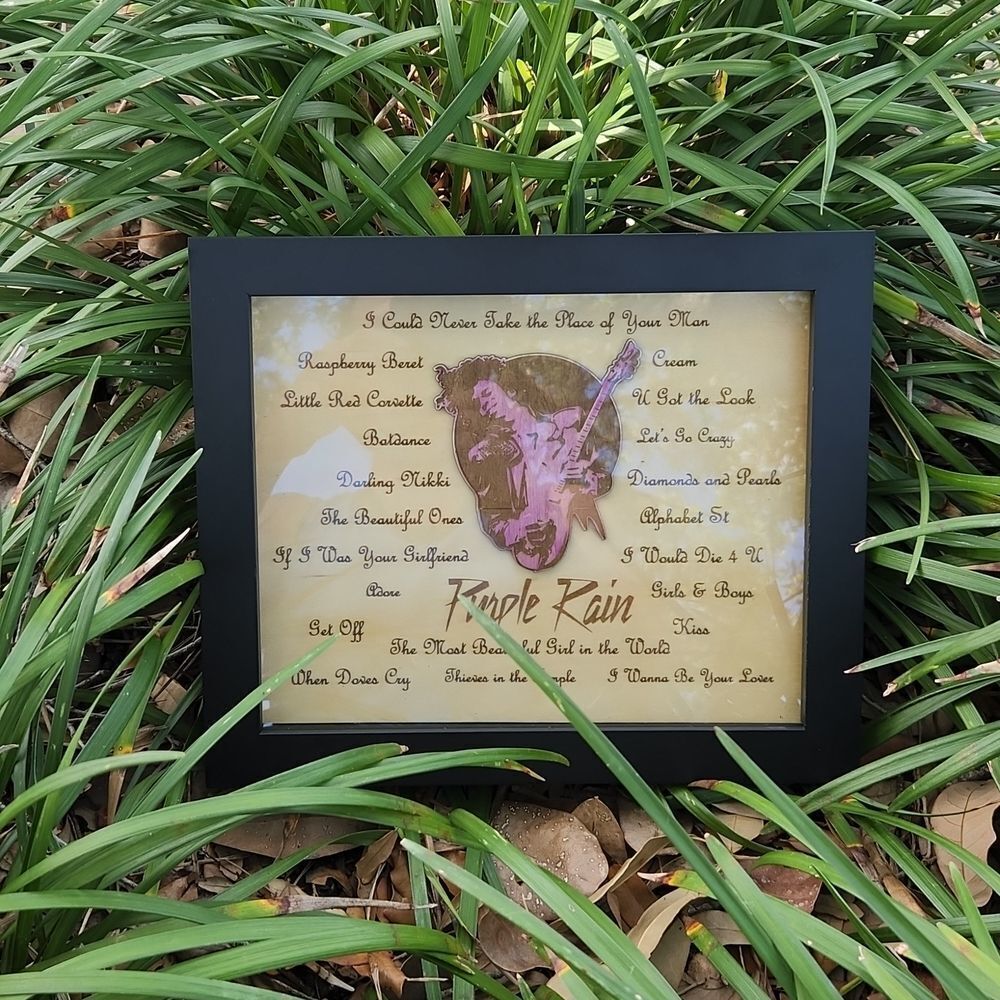 I Could Never Take the Place of Your Man
Raspberry Beret
Cream
Little Red Corvette
U Got the Look
Batdance
Let's Go Crazy
Darling Nikki
Diamonds and Pearls
The Beautiful Ones
Alphabet St
If I Was Your Girlfriend
I Would Die 4 U
Adore
Purple Rain
Girls & Boys
Get Off
Kiss
The Most Beautiful Girl in the World
When Doves Cry
Thieves in the Temple
I Wanna Be Your Lover